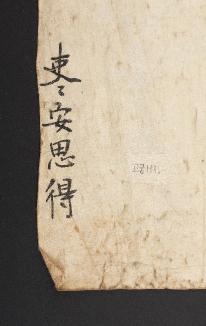 吏〻安思得